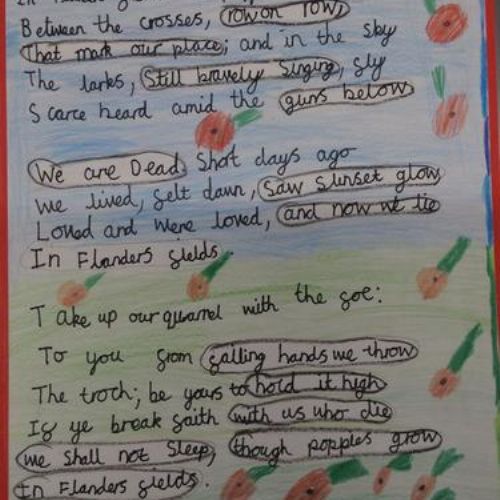 Between the crosses, row on row,
That mark our place; and in the sky
The larks, still bravely singing, fly
Scarce heard amid the guns below
We are Dead. Shot days ago
we lived, felt dawn, saw sunset glow
Loved and were loved, and now we lie
In Flanders fields.
Take up our quarrel with the foe:
To you from falling hands we throw
The troch; be yours to hold it high
If ye break faith with us who die
we shall not sleep, though poppies grow
In Flanders fields.